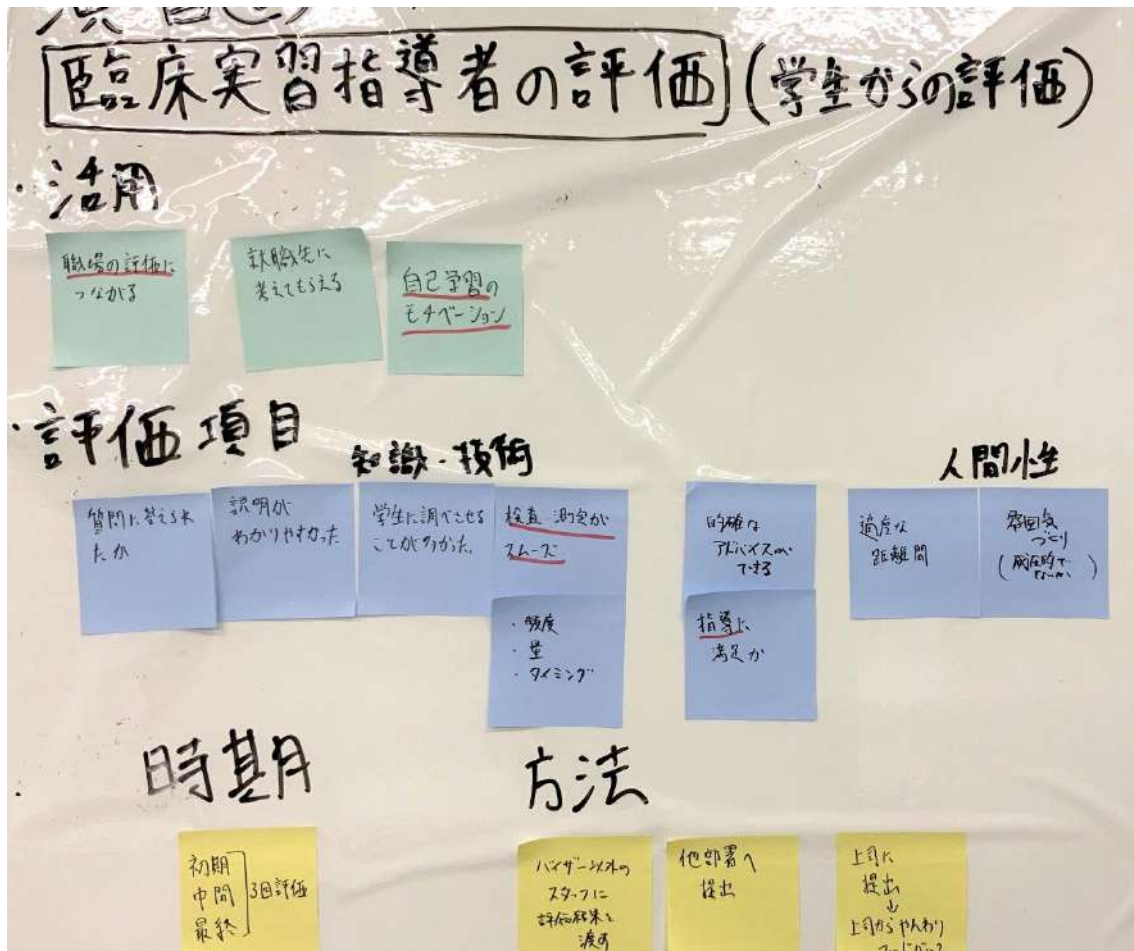 臨床実習指導者の評価(学生からの評価)
・活用
職場の評価に
つながる
就職先に
考えてもらえる
自己学習の
モチベーション
・評価項目
知識・技術
人間性
質問に答え
たか
説明が
わかりやすかった
学生に調べこさせる
ことが多かった。
検査・測定が
スムーズ
的確な
アドバイスが
できる
適度な
距離間
雰囲気
づくり
(威圧的で
ないか)
・頻度
・量
・タイミング
指導に
満足か
・時期
方法
初期
中間
最終
3回評価
バイザー以外の
スタッフに
評価結果を
渡す
他部署へ
提出
上司に
提出
↓
上司からやんわり